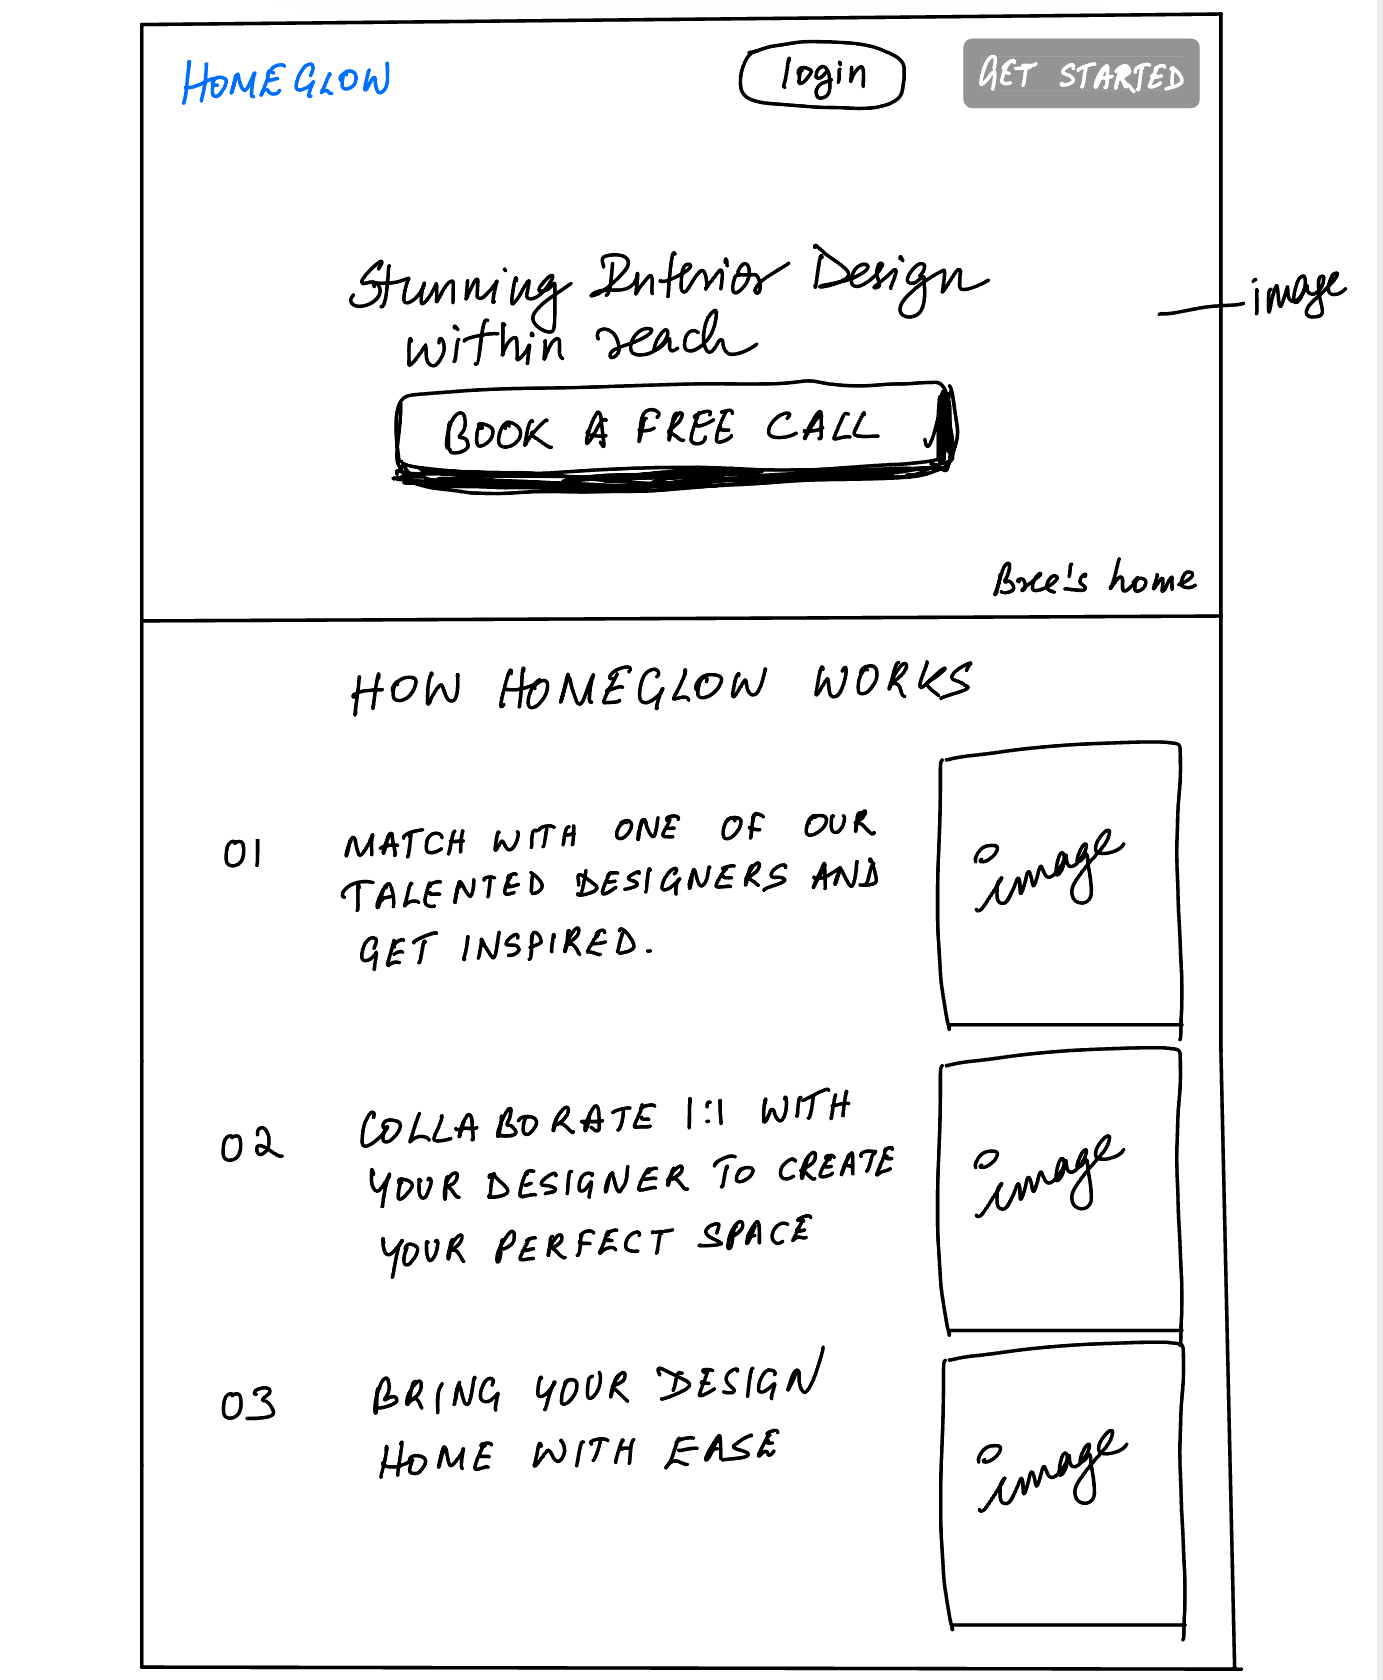 HOMEGLOW
login
GET STARTED
Stunning Interior Design
within reach
image
BOOK A FREE CALL
Bree's home
HOW HOMEGLOW WORKS
01
MATCH WITH ONE OF OUR
TALENTED DESIGNERS AND
GET INSPIRED.
image
02
COLLABORATE 1:1 WITH
YOUR DESIGNER TO CREATE
YOUR PERFECT SPACE
image
03
BRING YOUR DESIGN
HOME WITH EASE
image